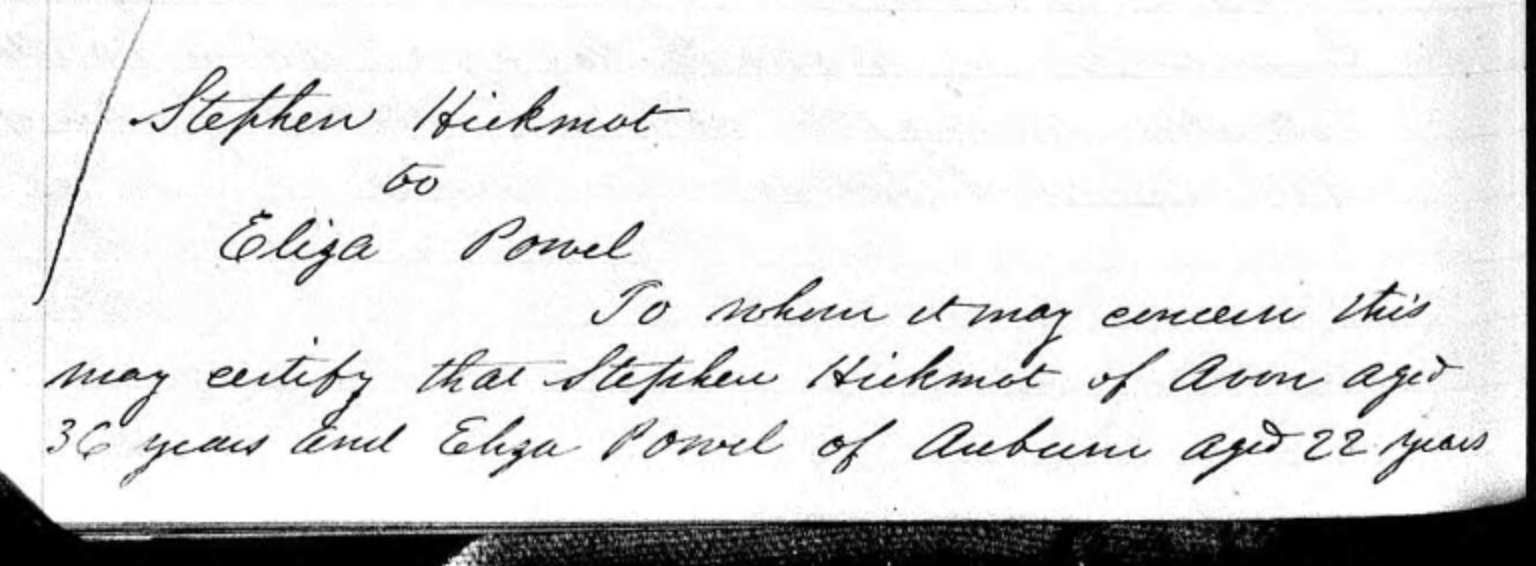 Stephen Hickmot
to
Eliza Powel
To whom it may concern this
may certify that Stephen Hickmot of Avon aged
36 years and Eliza Powel of Auburn aged 22 years